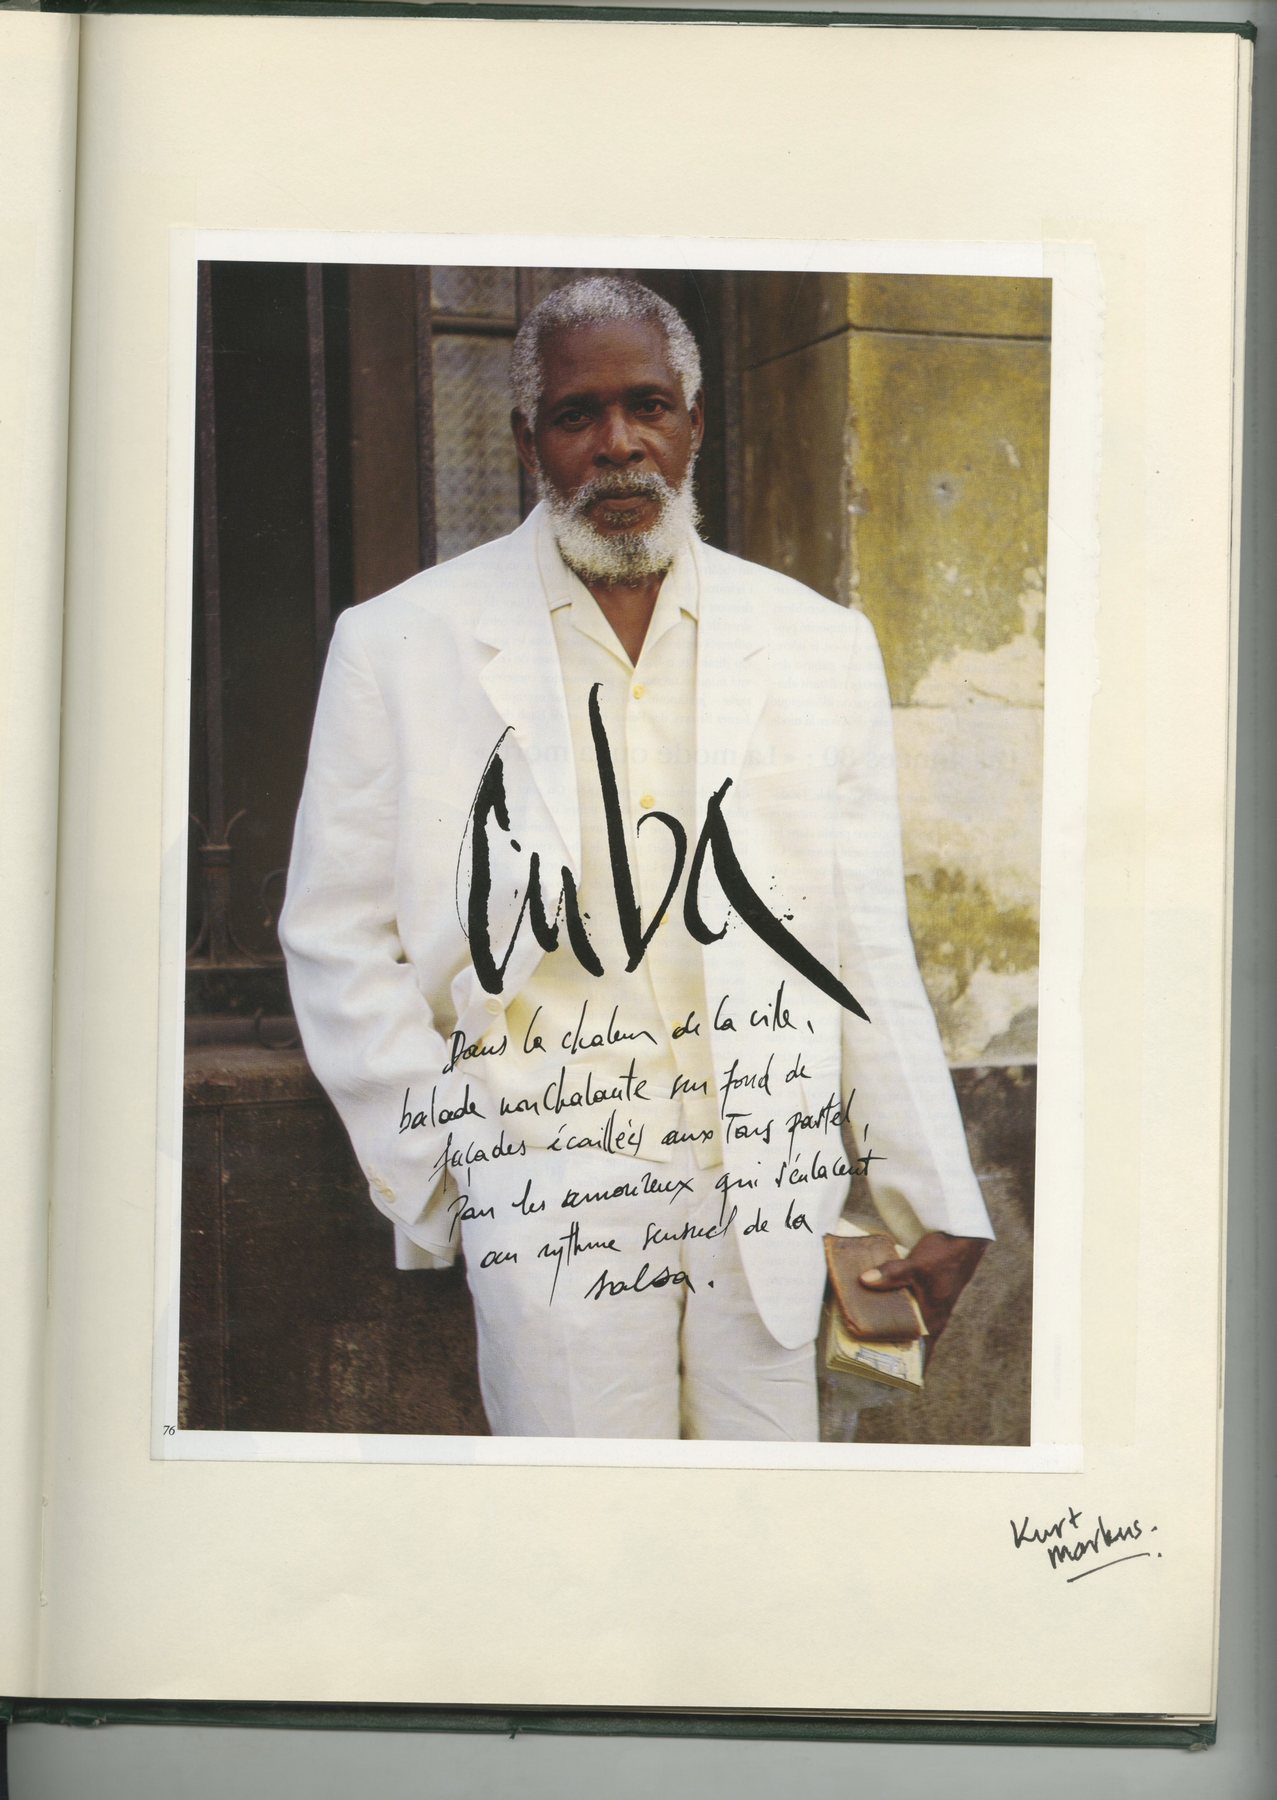 Cuba
Dans la chaleur de la ville,
balade nonchalante sur fond de
façades écaillées aux tons pastel,
par les amoureux qui s'enlacent
au rythme sensuel de la
salsa.
76
Kurt
Markus.